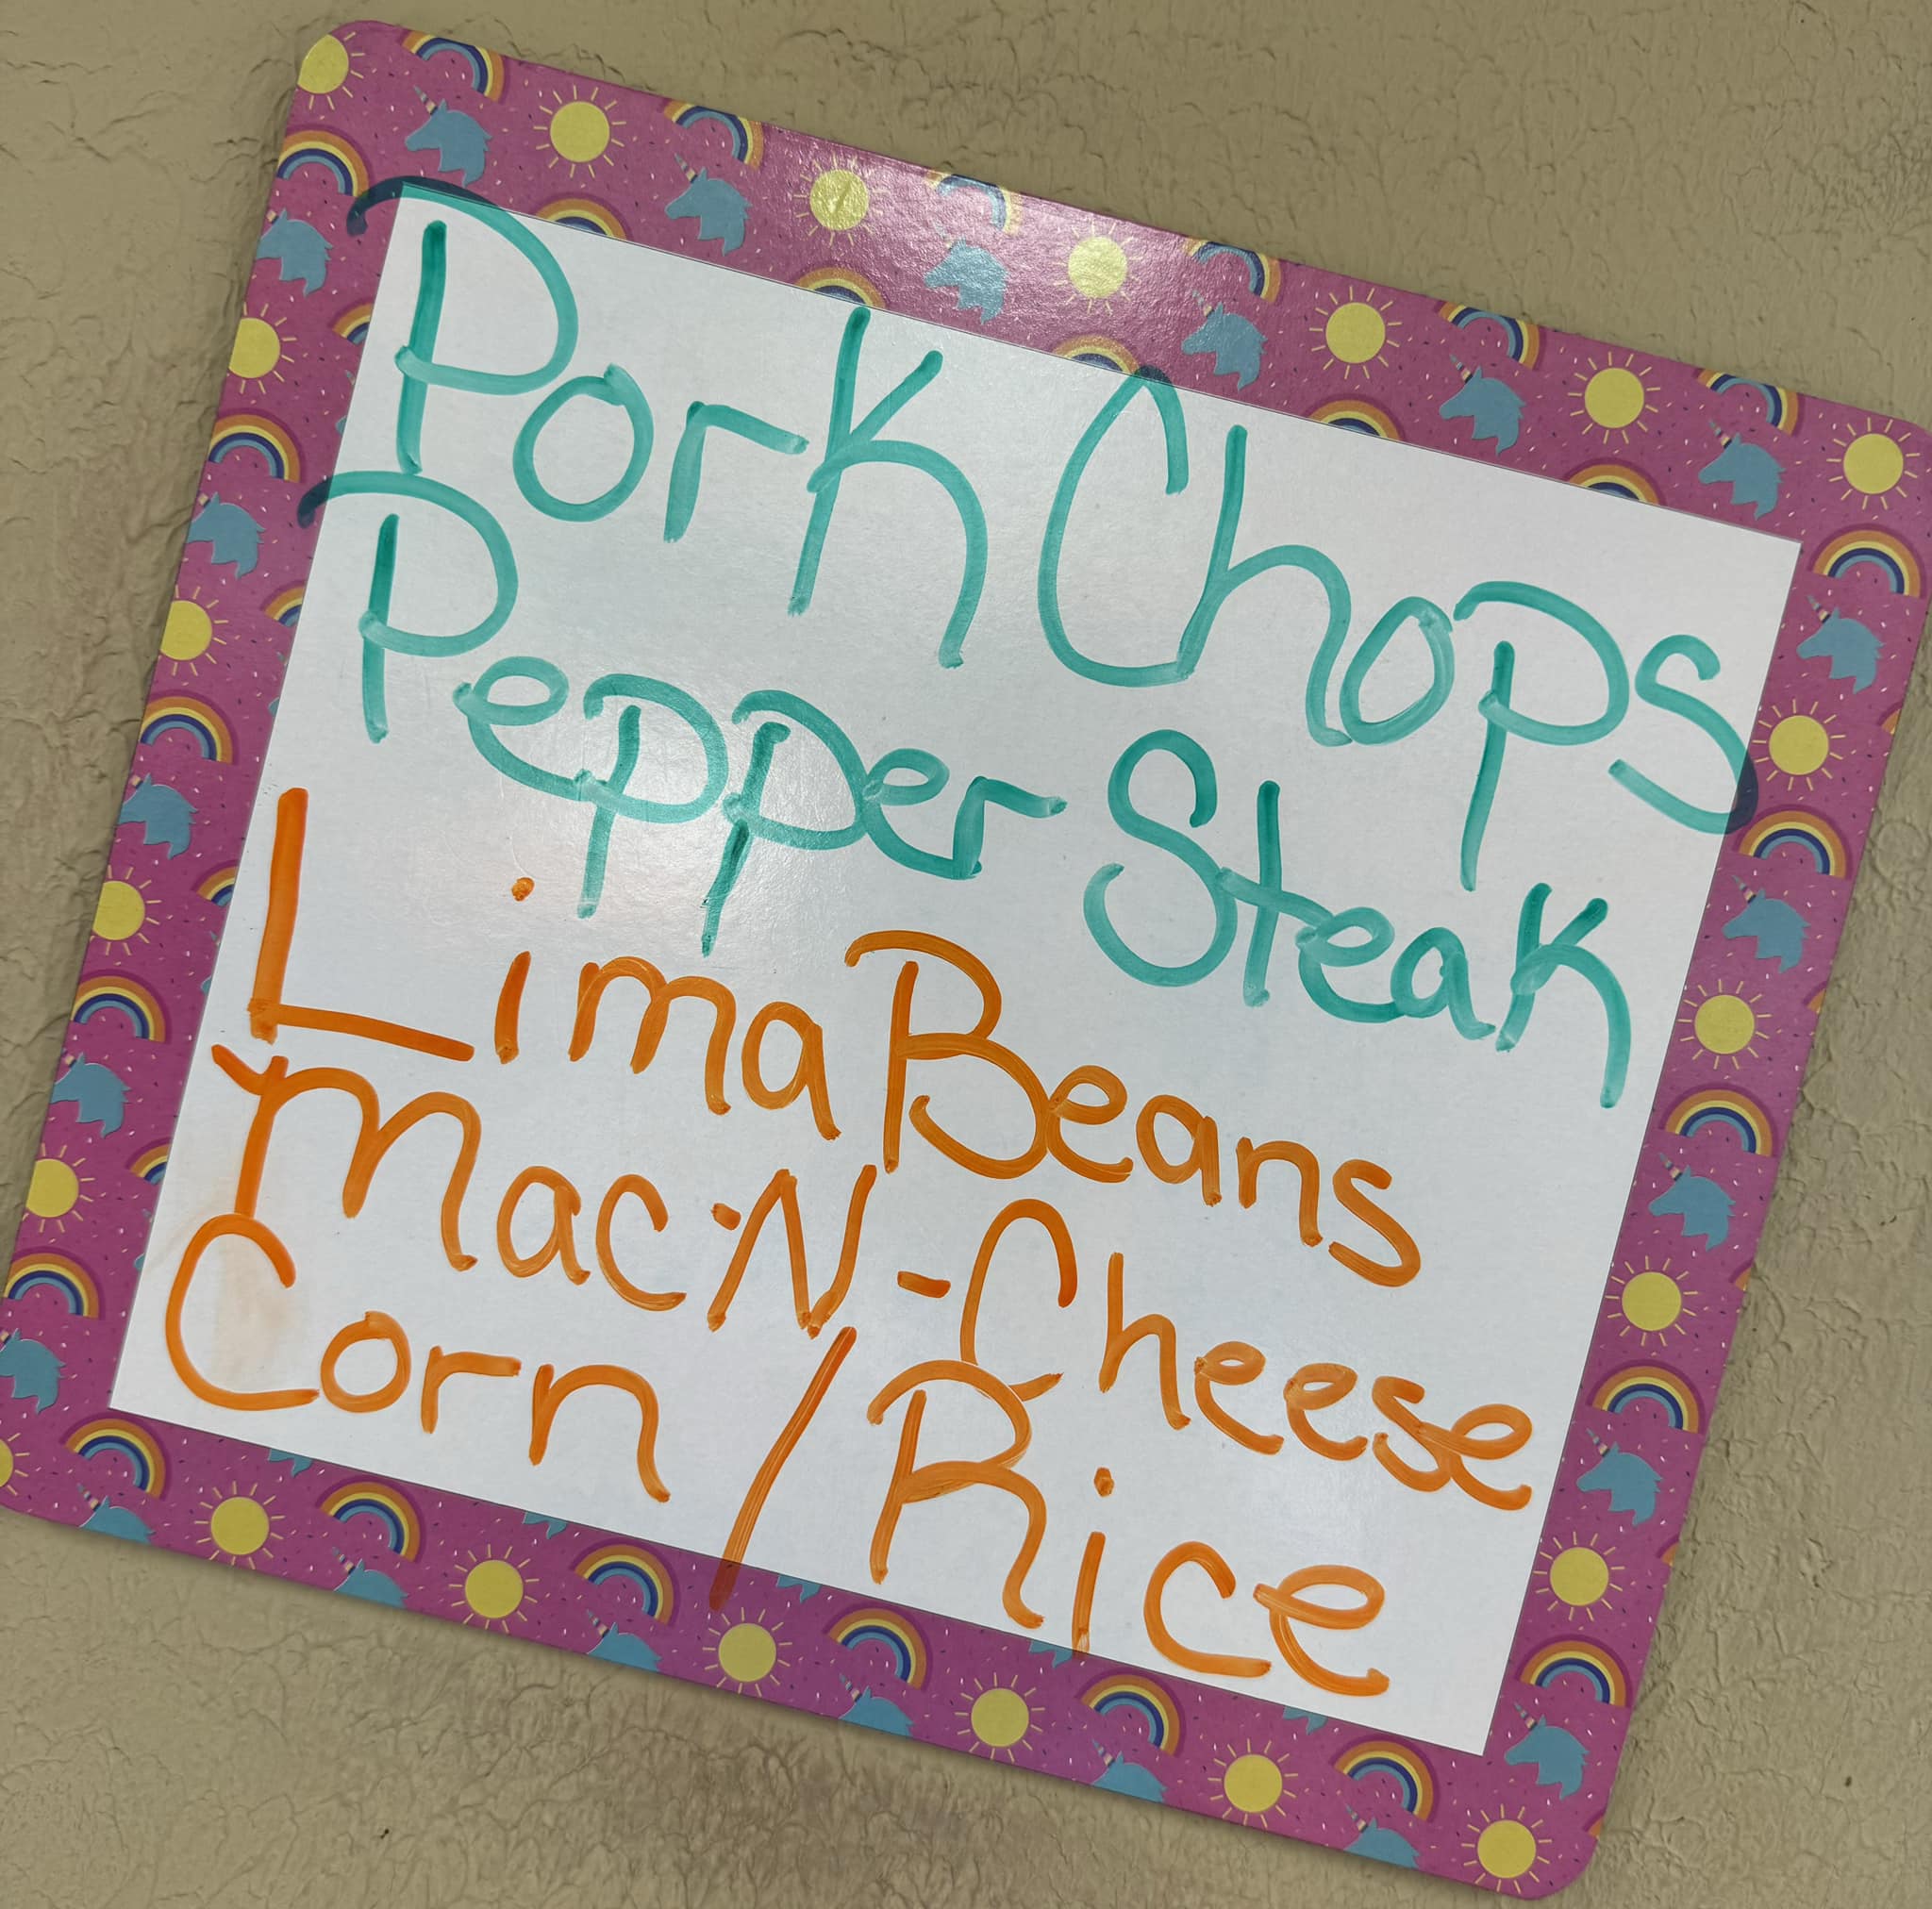 Pork Chops
Pepper Steak
Lima Beans
Mac-N-Cheese
Corn / Rice